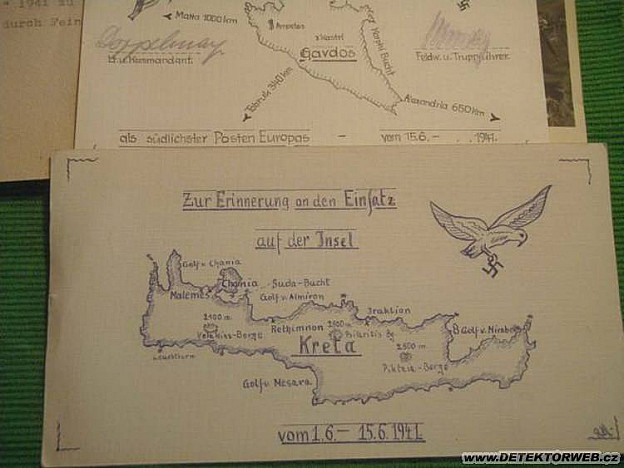 1941 zu
durch Fein
Malta 1000 km
Ampelos
Kastri
Gavdos
Bucht
Lt. u. Kommandant.
Feldw. u. Truppführer.
Tobruk 340 km
Alexandria 650 km
als südlichster Posten Europas – vom 15.6. – . . 1941.
Zur Erinnerung an den Einsatz
auf der Insel
Golf v. Chania
Chania
Suda-Bucht
Malemes
Golf v. Almiron
Iraklion
2400 m.
Rethimnon
2500 m.
Golf v. Mirabello
Kreta
2500 m.
Leuchtturm
Golf v. Mesara
vom 1.6. – 15.6.1941.
www.DETEKTORWEB.cz